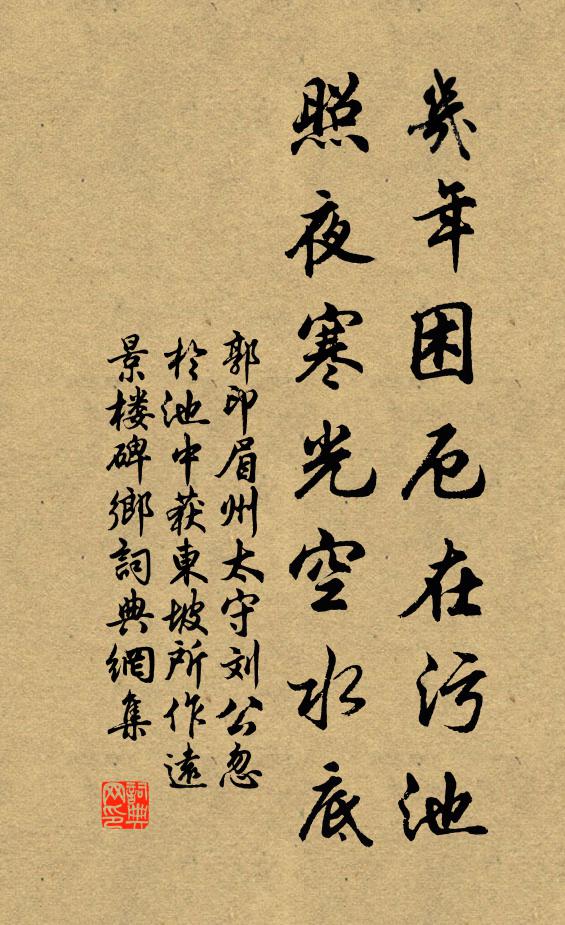 幾年困厄在污池
照夜寒光空水底
郭印眉州太守刘公忽
於池中获東坡所作遠
景楼碑鄉詞典網集
詞典
网印